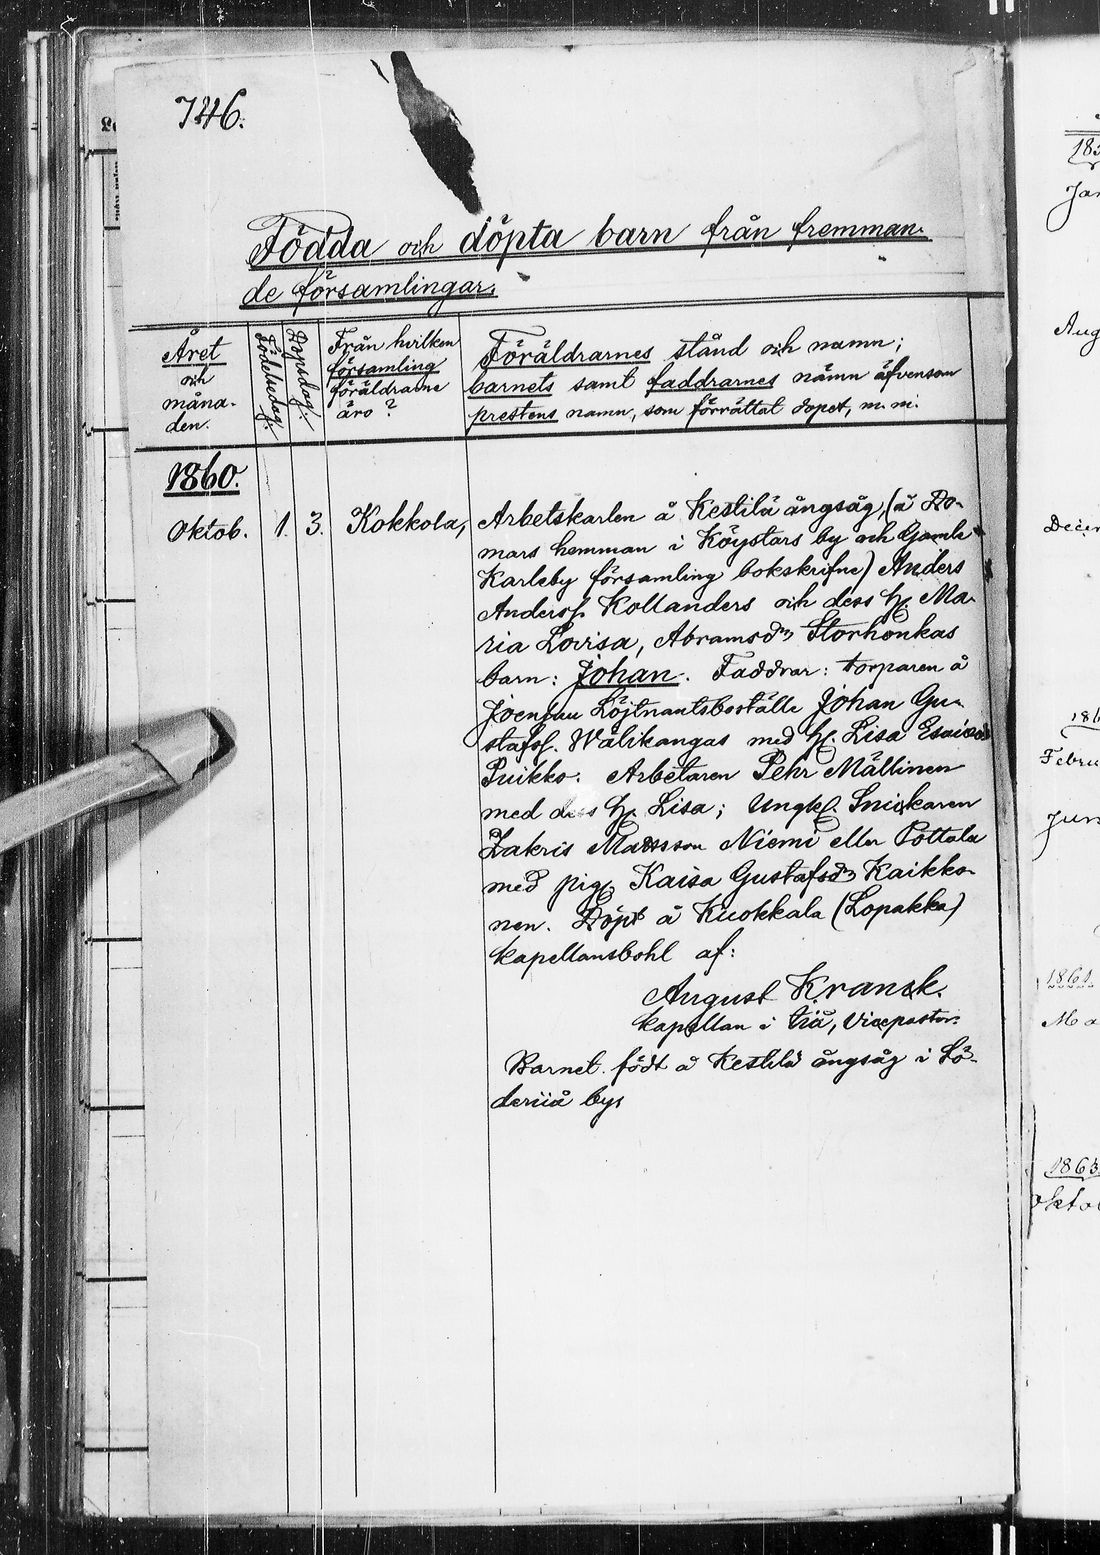 746.
Födda och döpta barn från fremman-
de församlingar.
Året
och
måna-
den.
Födelsedag.
Dopsdag.
Från hvilken
församling
föräldrarne
äro?
Föräldrarnes stånd och namn;
barnets samt faddrarnes namn äfvensom
prestens namn, som förrättat dopet, m. m.
1860.
Oktob. 1. 3. Kokkola,
Arbetskarlen å Kestilä ångsåg, (å Do-
mars hemman i Köystars by och Gamle
Karleby församling bokskrifne) Anders
Anderss. Kollanders och dess H. Ma-
ria Lovisa, Abramsdr Storhonkas
barn: Johan. Faddrar: torparen å
Joensuu Löjtnantsboställe Johan Gu-
stafss. Wälikangas med H. Lisa Esaiasd
Puikko. Arbetaren Pehr Mällinen
med dess H. Lisa; Ungk. Snickaren
Zakris Matsson Niemi eller Pottala
med pig. Kaisa Gustafsdr Kaikko-
nen. Döpt å Kuokkala (Lopakka)
kapellansbohl af:
August Kranck.
kapellan i Siå, Vicepastor.
Barnet född å Kestilä ångsåg i Lö-
by,
183
Jan
Aug
Decem
186
Febru
Jun
1861.
Ma
1863
Oktob